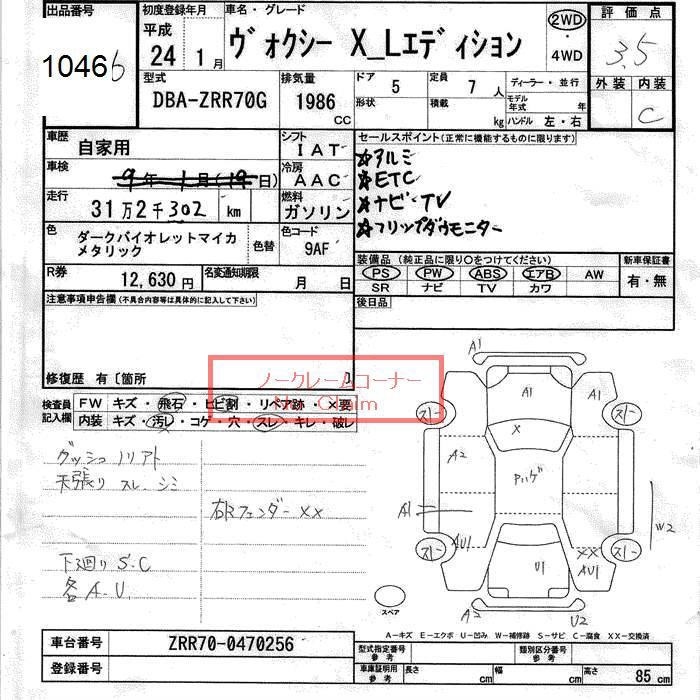 出品番号
10466
初度登録年月
平成
24年 1月
車名・グレード
ヴォクシー X_Lエディション
2WD
・
4WD
評価点
3.5
外装 内装
C
型式
DBA-ZRR70G
排気量
1986
CC
ドア 5
形状
定員 7 人
積載 kg
ディーラー・並行
モデル年式 年
ハンドル 左・右
車歴 自家用
シフト IAT
車検 9年 1月(19日)
冷房 AAC
走行 31万2千302 km
燃料 ガソリン
色 ダークバイオレットマイカメタリック
色替
色コード 9AF
R券 12,630円
名変通知期限 月 日
セールスポイント(正常に機能するものに限り)
☆アルミ
☆ETC
☆ナビ・TV
☆フリップダウンモニター
装備品(純正品に限り○をつけてください)
PS PW ABS エアB AW
SR ナビ TV カワ
新車保証書
有・無
後日品
注意事項申告欄(不具合内容等は具体的に記入して下さい)
修復歴 有〔箇所 〕
ノークレームコーナー
No Claim
検査員記入欄
FW キズ・飛石・ヒビ割・リペア跡・×要
内装 キズ・汚レ・コゲ・穴・スレ・キレ・破レ
天張り スレ シミ
右Fフェンダー XX
下廻り S.C
各A.U.
A1
A1
A1
スレ
スレ
X
A2
Pハゲ
A1
W2
AU1
XX
AU1
スレ
スレ
U1
A2
U2
スペア
A-キズ E-エクボ U-凹み W-補修跡 S-サビ C-腐食 XX-交換済
車台番号 ZRR70-0470256
登録番号
型式指定番号 参考
類別区分番号 参考
車庫証明用 参考
長さ cm
幅 cm
高さ 85 cm